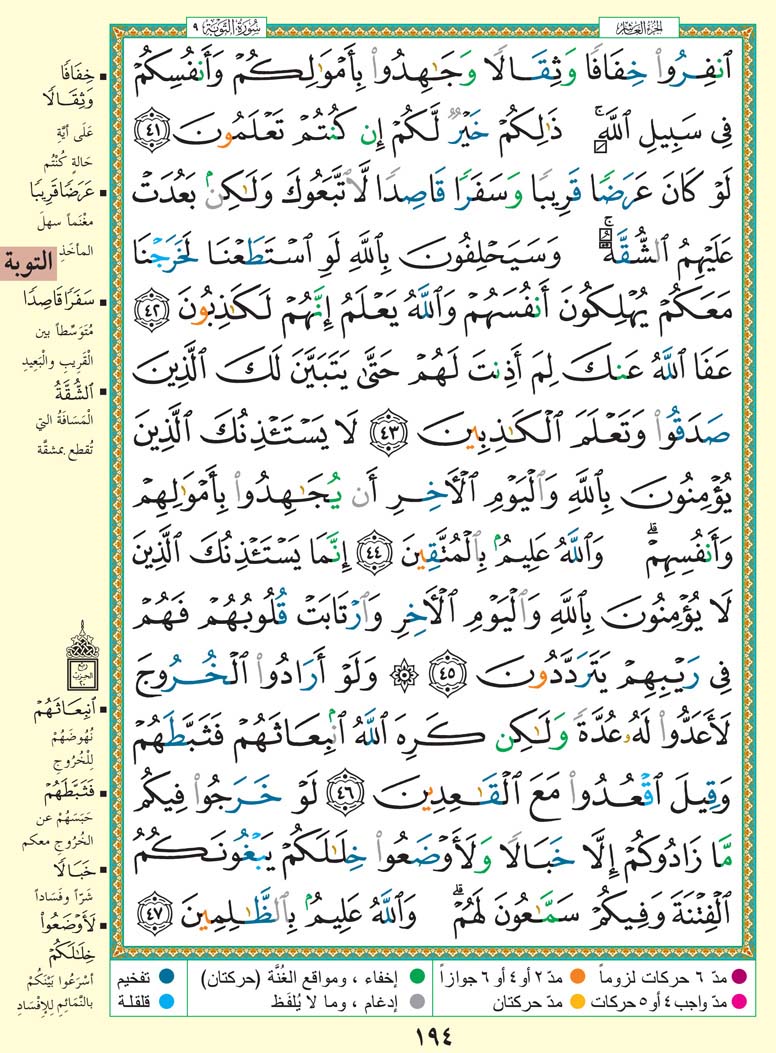 الجزء العاشر
سورة التوبة ٩
ٱنفِرُوا۟ خِفَافًا وَثِقَالًا وَجَٰهِدُوا۟ بِأَمْوَٰلِكُمْ وَأَنفُسِكُمْ
فِى سَبِيلِ ٱللَّهِ ۚ ذَٰلِكُمْ خَيْرٌ لَّكُمْ إِن كُنتُمْ تَعْلَمُونَ ٤١
لَوْ كَانَ عَرَضًا قَرِيبًا وَسَفَرًا قَاصِدًا لَّٱتَّبَعُوكَ وَلَٰكِنۢ بَعُدَتْ
عَلَيْهِمُ ٱلشُّقَّةُ ۚ وَسَيَحْلِفُونَ بِٱللَّهِ لَوِ ٱسْتَطَعْنَا لَخَرَجْنَا
مَعَكُمْ يُهْلِكُونَ أَنفُسَهُمْ وَٱللَّهُ يَعْلَمُ إِنَّهُمْ لَكَٰذِبُونَ ٤٢
عَفَا ٱللَّهُ عَنكَ لِمَ أَذِنتَ لَهُمْ حَتَّىٰ يَتَبَيَّنَ لَكَ ٱلَّذِينَ
صَدَقُوا۟ وَتَعْلَمَ ٱلْكَٰذِبِينَ ٤٣ لَا يَسْتَـْٔذِنُكَ ٱلَّذِينَ
يُؤْمِنُونَ بِٱللَّهِ وَٱلْيَوْمِ ٱلْءَاخِرِ أَن يُجَٰهِدُوا۟ بِأَمْوَٰلِهِمْ
وَأَنفُسِهِمْ ۗ وَٱللَّهُ عَلِيمٌۢ بِٱلْمُتَّقِينَ ٤٤ إِنَّمَا يَسْتَـْٔذِنُكَ ٱلَّذِينَ
لَا يُؤْمِنُونَ بِٱللَّهِ وَٱلْيَوْمِ ٱلْءَاخِرِ وَٱرْتَابَتْ قُلُوبُهُمْ فَهُمْ
فِى رَيْبِهِمْ يَتَرَدَّدُونَ ٤٥ ۞ وَلَوْ أَرَادُوا۟ ٱلْخُرُوجَ
لَأَعَدُّوا۟ لَهُۥ عُدَّةً وَلَٰكِن كَرِهَ ٱللَّهُ ٱنۢبِعَاثَهُمْ فَثَبَّطَهُمْ
وَقِيلَ ٱقْعُدُوا۟ مَعَ ٱلْقَٰعِدِينَ ٤٦ لَوْ خَرَجُوا۟ فِيكُم
مَّا زَادُوكُمْ إِلَّا خَبَالًا وَلَأَوْضَعُوا۟ خِلَٰلَكُمْ يَبْغُونَكُمُ
ٱلْفِتْنَةَ وَفِيكُمْ سَمَّٰعُونَ لَهُمْ ۗ وَٱللَّهُ عَلِيمٌۢ بِٱلظَّٰلِمِينَ ٤٧
خِفَافًا
وَثِقَالًا
عَلَى أيَّةِ
حَالةٍ كُنْتُم
عَرَضًا قَرِيبًا
مغْنَماً سهلَ
المأخَذِ
التوبة
سَفَرًا قَاصِدًا
مُتَوسِّطاً بين
القَريبِ والْبَعِيدِ
ٱلشُّقَّةُ
الْمَسَافَةُ التي
تُقطع بمشقَّة
ربع
الحزب
٢٠
ٱنۢبِعَاثَهُمْ
نُهُوضَهُمْ
لِلْخُرُوجِ
فَثَبَّطَهُمْ
حَبَسَهُمْ عن
الخُروجِ معكم
خَبَالًا
شَرّاً وفَسَاداً
لَأَوْضَعُوا۟
خِلَٰلَكُمْ
أسْرَعُوا بَيْنَكُمْ
بالنَّمَائِمِ لِلإِفْسَادِ
مدّ ٦ حركات لزوماً مدّ ٢ أو ٤ أو ٦ جوازاً إخفاء ، ومواقع الغُنَّة (حركتان) تفخيم
مدّ واجب ٤ أو ٥ حركات مدّ حركتان إدغام ، وما لا يُلفَظ قلقلة
١٩٤